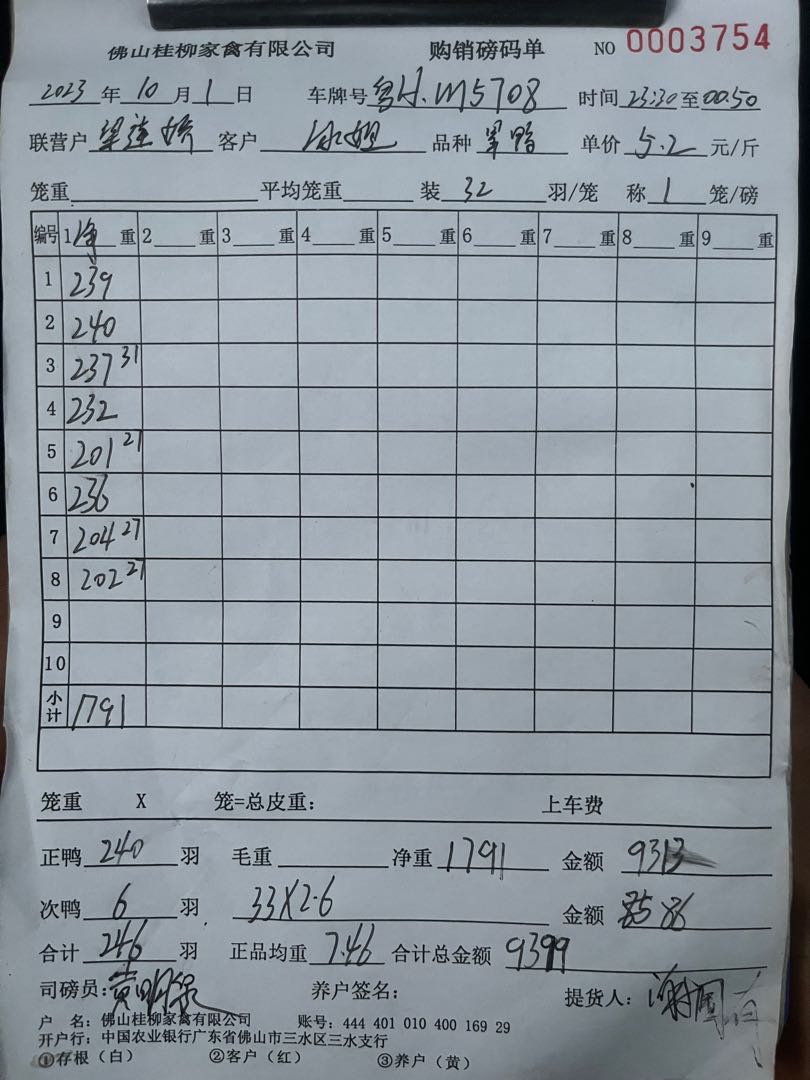 佛山桂柳家禽有限公司 购销磅码单 NO 0003754
2023年10月1日 车牌号 M5708 时间 23:30至00:50
联营户 客户 冰姐 品种 单价 5.2 元/斤
笼重 平均笼重 装 32 羽/笼 称 1 笼/磅
编号 1净重 2重 3重 4重 5重 6重 7重 8重 9重
1 239
2 240
3 237 31
4 232
5 201 27
6 236
7 204 27
8 202 27
9
10
小计 1791
笼重 X 笼=总皮重: 上车费
正鸭 240 羽 毛重 净重 1791 金额 9313
次鸭 6 羽 33X2.6 金额 86
合计 246 羽 正品均重 7.46 合计总金额 9399
司磅员: 养户签名: 提货人:
户 名: 佛山桂柳家禽有限公司 账号: 444 401 010 400 169 29
开户行: 中国农业银行广东省佛山市三水区三水支行
①存根(白) ②客户(红) ③养户(黄)